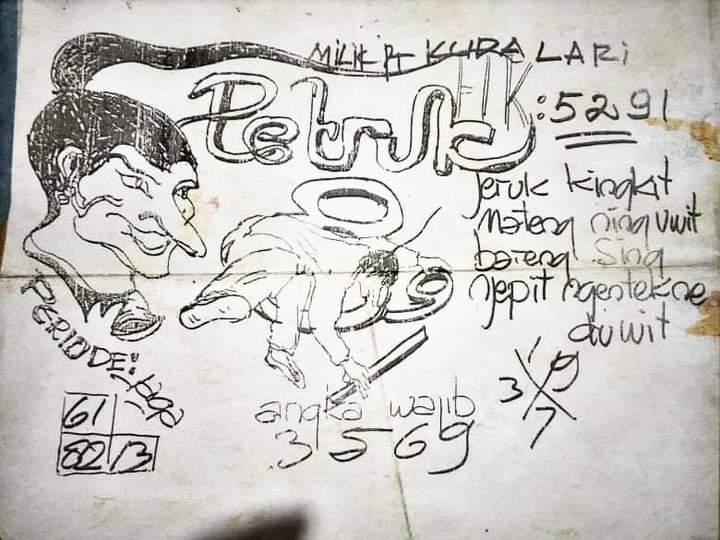 MILIK PT KUDA LARI
Petruk
HK : 5291
jeruk kingkit
Mateng ning uwit
bareng sing
njepit ngentekne
duwit
PERIODE:
61
82 13
angka wajib
3 5 6 9
1 9
3 7